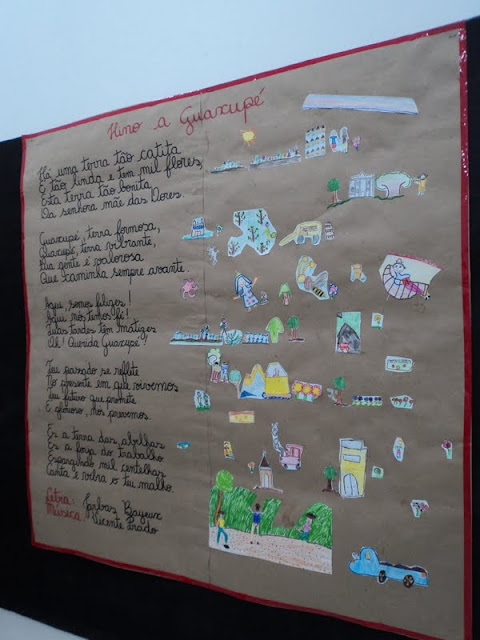 Hino a Guaxupé
Há uma terra tão catita
E tão linda e tem mil flores,
Esta terra tão bonita
Da senhora mãe das Dores.
Guaxupé, terra formosa,
Guaxupé, terra vibrante,
Tua gente é valorosa
Que caminha sempre avante.
Aqui somos felizes!
Aqui nós temos fé!
Suas tardes têm matizes
Oh! Querida Guaxupé!
Teu passado se reflete
No presente em que vivemos
Teu futuro que promete
É glorioso, nós prevemos.
És a terra das abelhas
És a força do trabalho
Espargindo mil centelhas
Canta e vibra o teu malho.
Letra: Jarbas Bayeux
Música: Vicente Prado